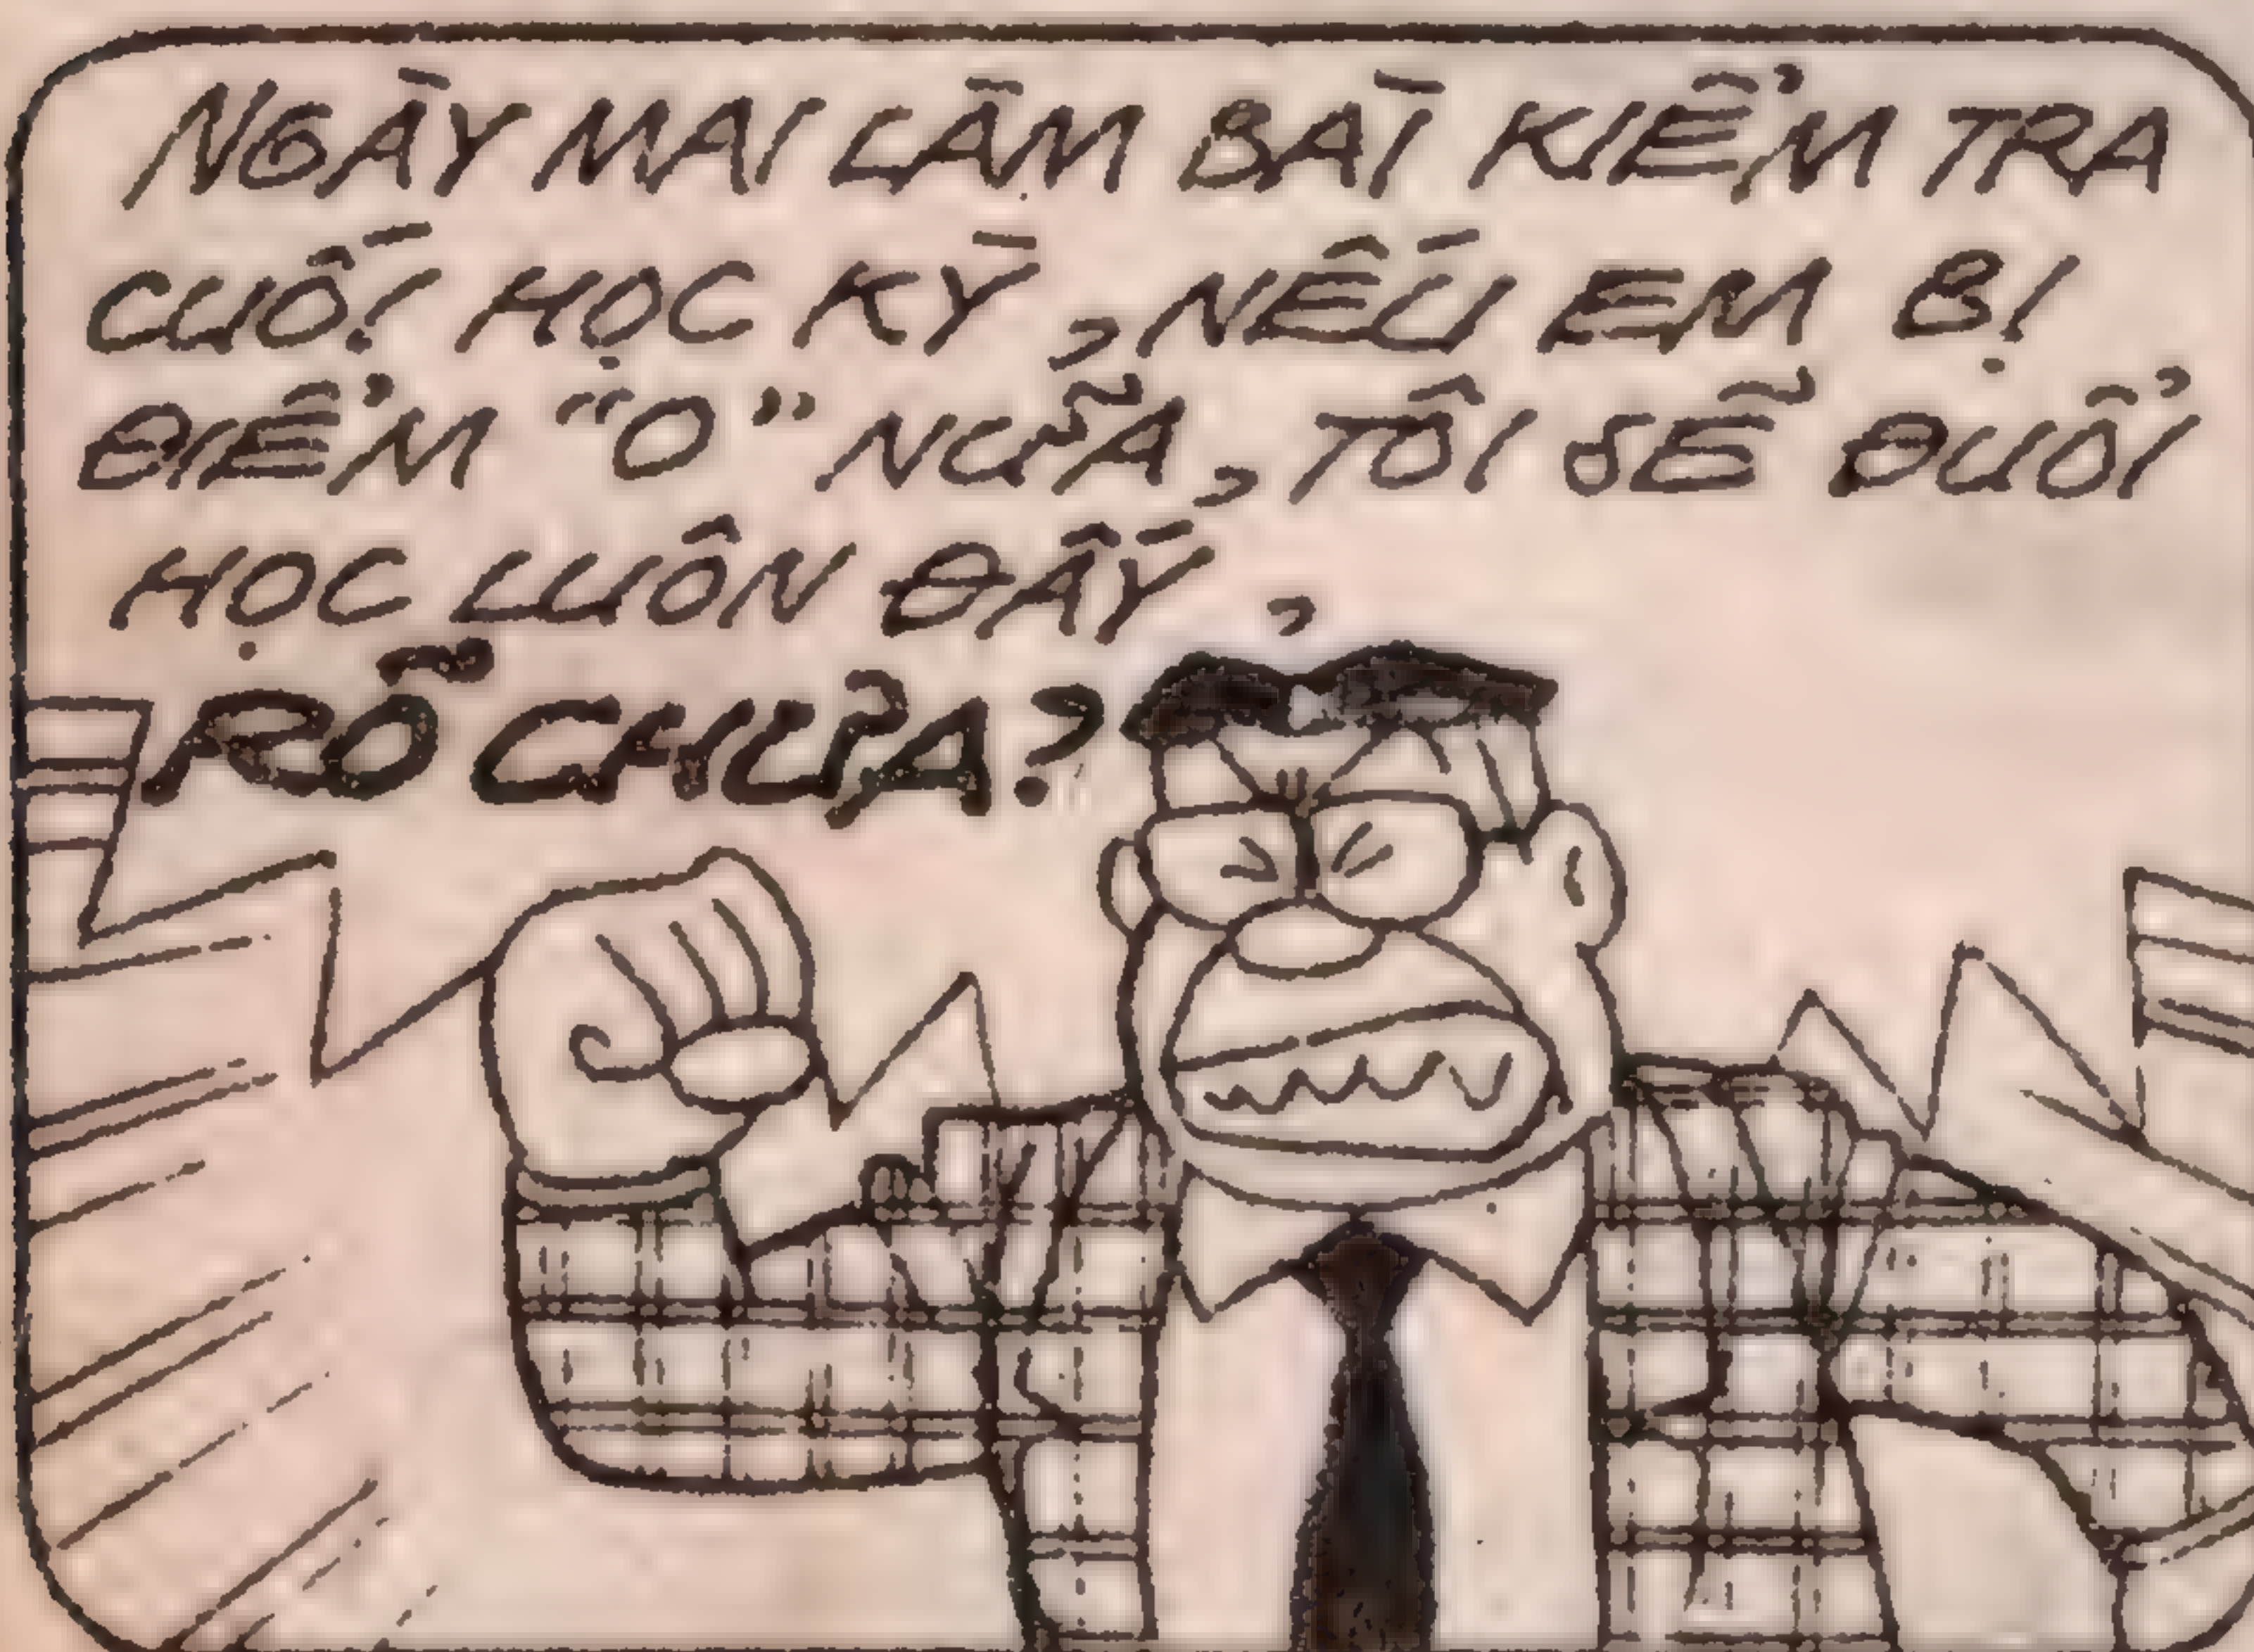 NGÀY MAI LÀM BÀI KIỂM TRA
CUỐI HỌC KỲ, NẾU EM BỊ
ĐIỂM "O" NỮA, TÔI SẼ ĐUỔI
HỌC LUÔN ĐẤY,
RÕ CHƯA?